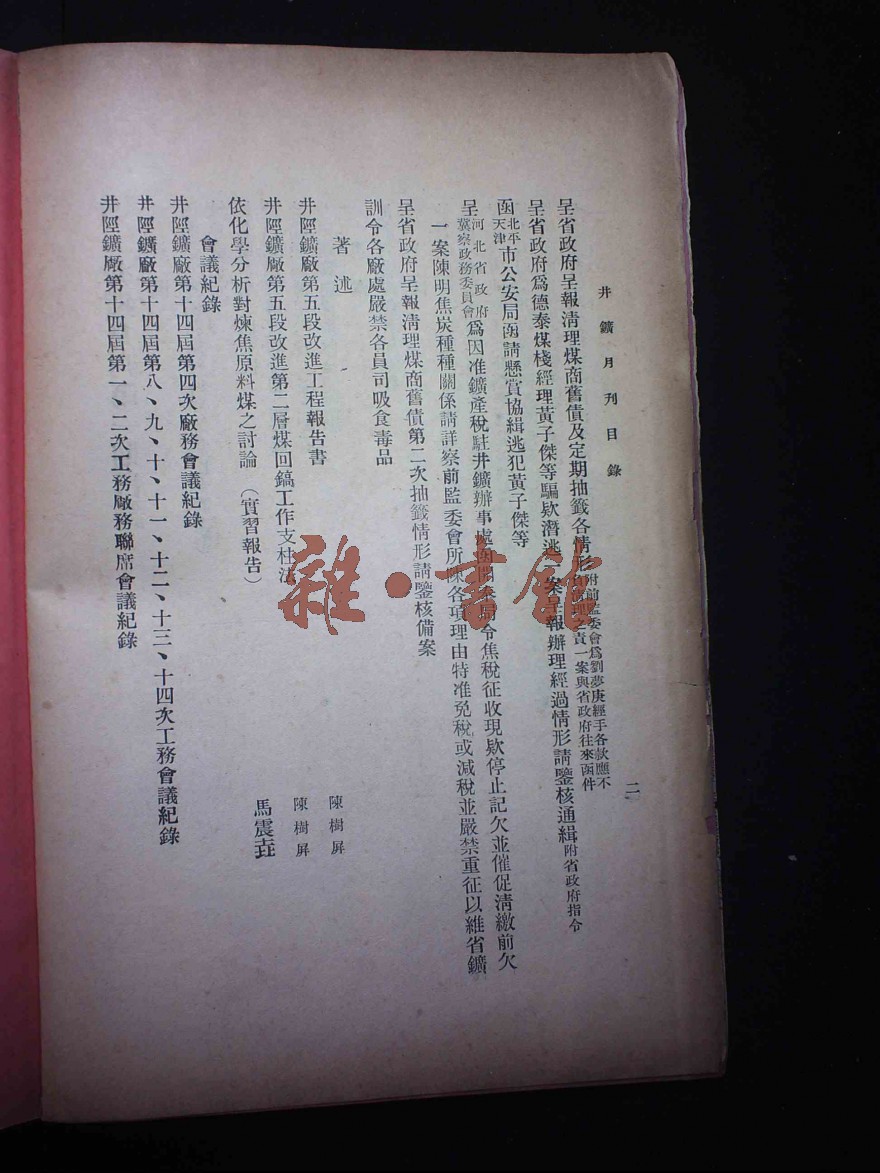 井鑛月刊目錄
二
呈省政府呈報清理煤商舊債及定期抽籤各情形附前監委會爲劉夢庚經手各款應不負管理之責一案與省政府往來函件
呈省政府爲德泰煤棧經理黃子傑等騙欵潛逃一案呈報辦理經過情形請鑒核通緝附省政府指令
函北平天津市公安局函請懸賞協緝逃犯黃子傑等
呈河北省政府冀察政務委員會爲因准鑛產稅駐井鑛辦事處函開奉局令焦稅征收現欵停止記欠並催促清繳前欠
一案陳明焦炭種種關係請詳察前監委會所陳各項理由特准免稅或減稅並嚴禁重征以維省鑛
呈省政府呈報清理煤商舊債第二次抽籤情形請鑒核備案
訓令各廠處嚴禁各員司吸食毒品
著述
井陘鑛廠第五段改進工程報告書 陳樹屏
井陘鑛廠第五段改進第二層煤回鎬工作支柱法 陳樹屏
依化學分析對煉焦原料煤之討論（實習報告） 馬震壵
會議紀錄
井陘鑛廠第十四屆第四次廠務會議紀錄
井陘鑛廠第十四屆第八、九、十、十一、十二、十三、十四次工務會議紀錄
井陘鑛廠第十四屆第一、二次工務廠務聯席會議紀錄
雜·書館